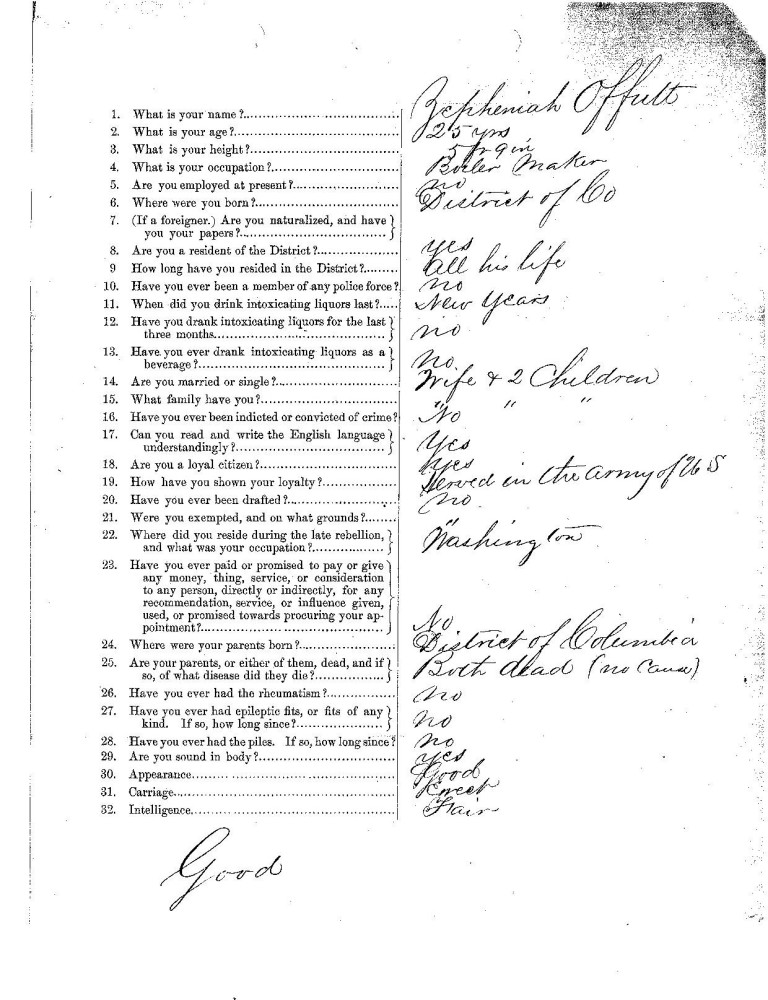 1. What is your name?.......... Zepheniah Offutt
2. What is your age?.......... 25 yrs,
3. What is your height?.......... 5 ft 9 in
4. What is your occupation?.......... Boiler Maker
5. Are you employed at present?.......... no
6. Where were you born?.......... District of Co
7. (If a foreigner.) Are you naturalized, and have
you your papers?..........
8. Are you a resident of the District?.......... yes
9 How long have you resided in the District?........ all his life
10. Have you ever been a member of any police force? no
11. When did you drink intoxicating liquors last?..... New Years
12. Have you drank intoxicating liquors for the last
three months.......... no
13. Have you ever drank intoxicating liquors as a
beverage?.......... no.
14. Are you married or single?.......... Wife & 2 Children
15. What family have you?.......... " " "
16. Have you ever been indicted or convicted of crime? No
17. Can you read and write the English language
understandingly?.......... Yes
18. Are you a loyal citizen?.......... Yes
19. How have you shown your loyalty?.......... Served in the army of U S
20. Have you ever been drafted?.......... no
21. Were you exempted, and on what grounds?........ "
22. Where did you reside during the late rebellion,
and what was your occupation?.......... Washington
23. Have you ever paid or promised to pay or give
any money, thing, service, or consideration
to any person, directly or indirectly, for any
recommendation, service, or influence given,
used, or promised towards procuring your ap-
pointment?.......... No
24. Where were your parents born?.......... District of Columbia
25. Are your parents, or either of them, dead, and if
so, of what disease did they die?.......... Both dead (no Cause)
26. Have you ever had the rheumatism?.......... no
27. Have you ever had epileptic fits, or fits of any
kind. If so, how long since?.......... no
28. Have you ever had the piles. If so, how long since? no
29. Are you sound in body?.......... yes
30. Appearance.......... Good
31. Carriage.......... Erect
32. Intelligence.......... Fair
Good